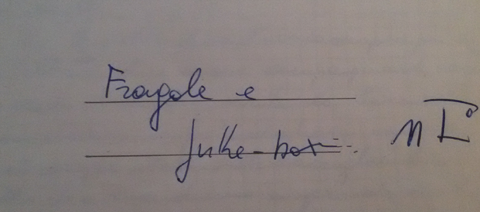 Fragole e
Juke-box. n I°